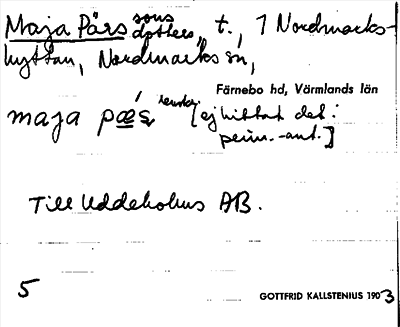 Maja Pärs sons dotters, t., 1 Nordmarks-
hyttan, Nordmarks sn,
Färnebo hd, Värmlands län
maja pæ̲s [ej hittat det:
prim.-ant.]
Till Uddeholms AB.
5
GOTTFRID KALLSTENIUS 1903